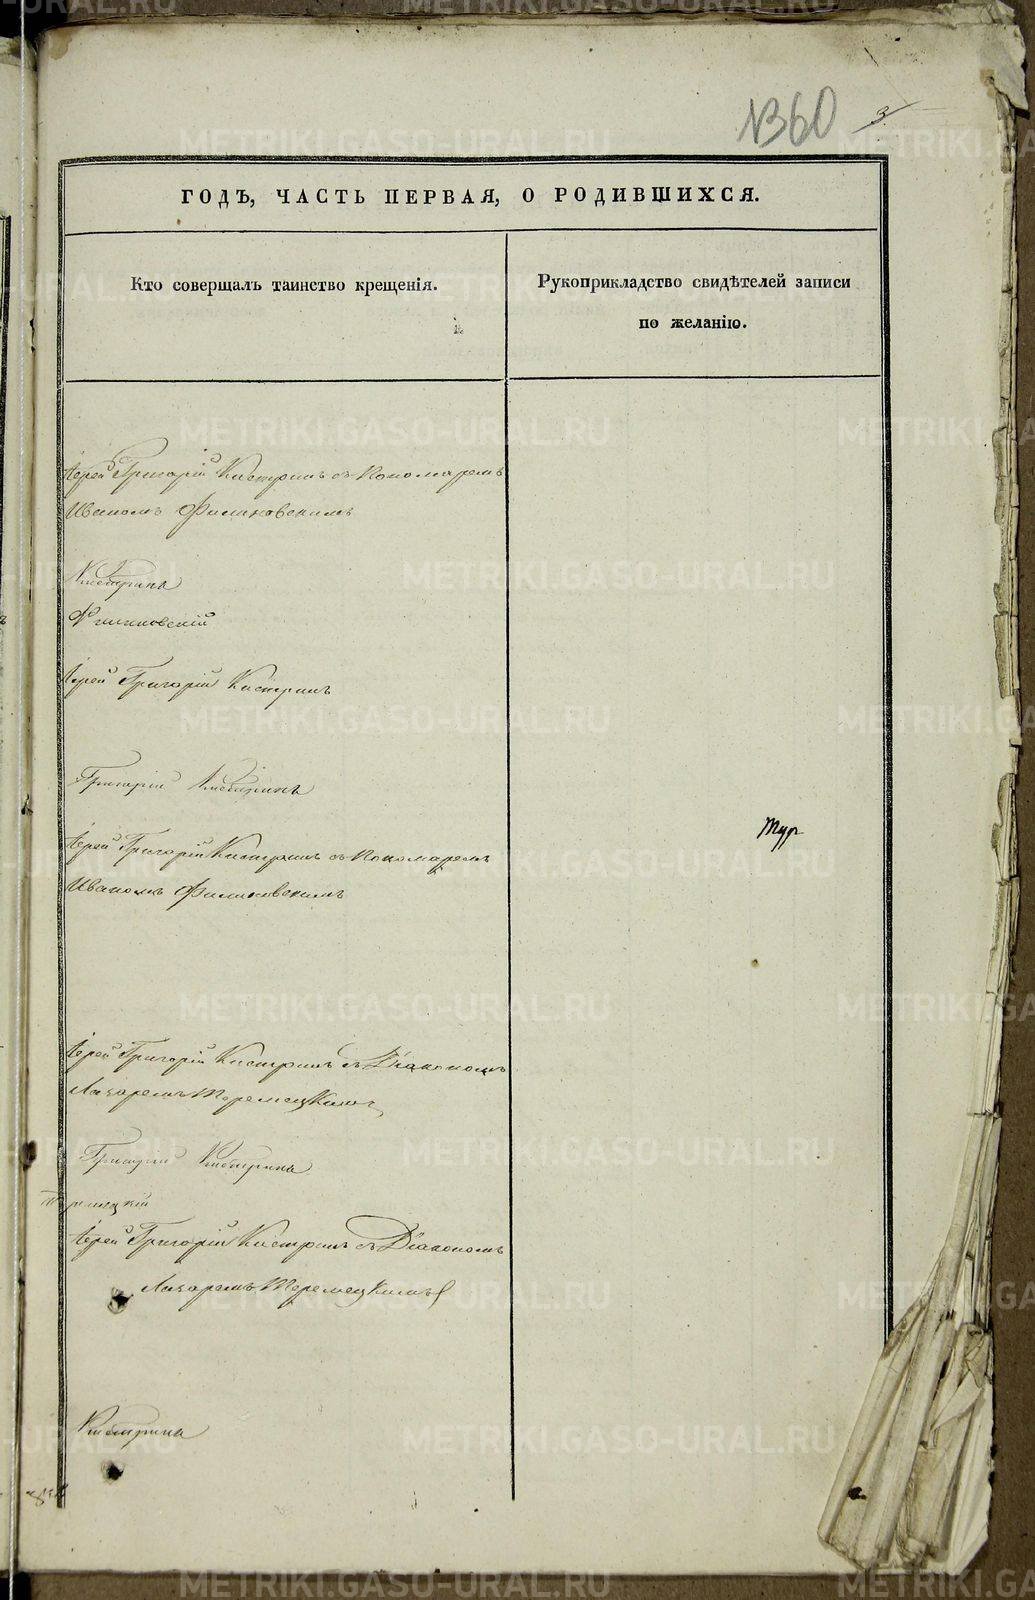 №360
3
ГОДЪ, ЧАСТЬ ПЕРВАЯ, О РОДИВШИХСЯ.
Кто совершалъ таинство крещенія.
Рукоприкладство свидѣтелей записи
по желанію.
Іерей Григорій Кистринъ съ Пономаремъ
Иваномъ Филиновскимъ
Кистринъ
Филиновскій
Іерей Григорій Кистринъ
Григорій Кистринъ
Іерей Григорій Кистринъ съ Пономаремъ
Иваномъ Филиновскимъ
Іерей Григорій Кистринъ съ Діакономъ
Лазаремъ Теремецкимъ
Григорій Кистринъ
Іерей Григорій Кистринъ съ Діакономъ
Лазаремъ Теремецкимъ
Кистринъ
METRIKI.GASO-URAL.RU